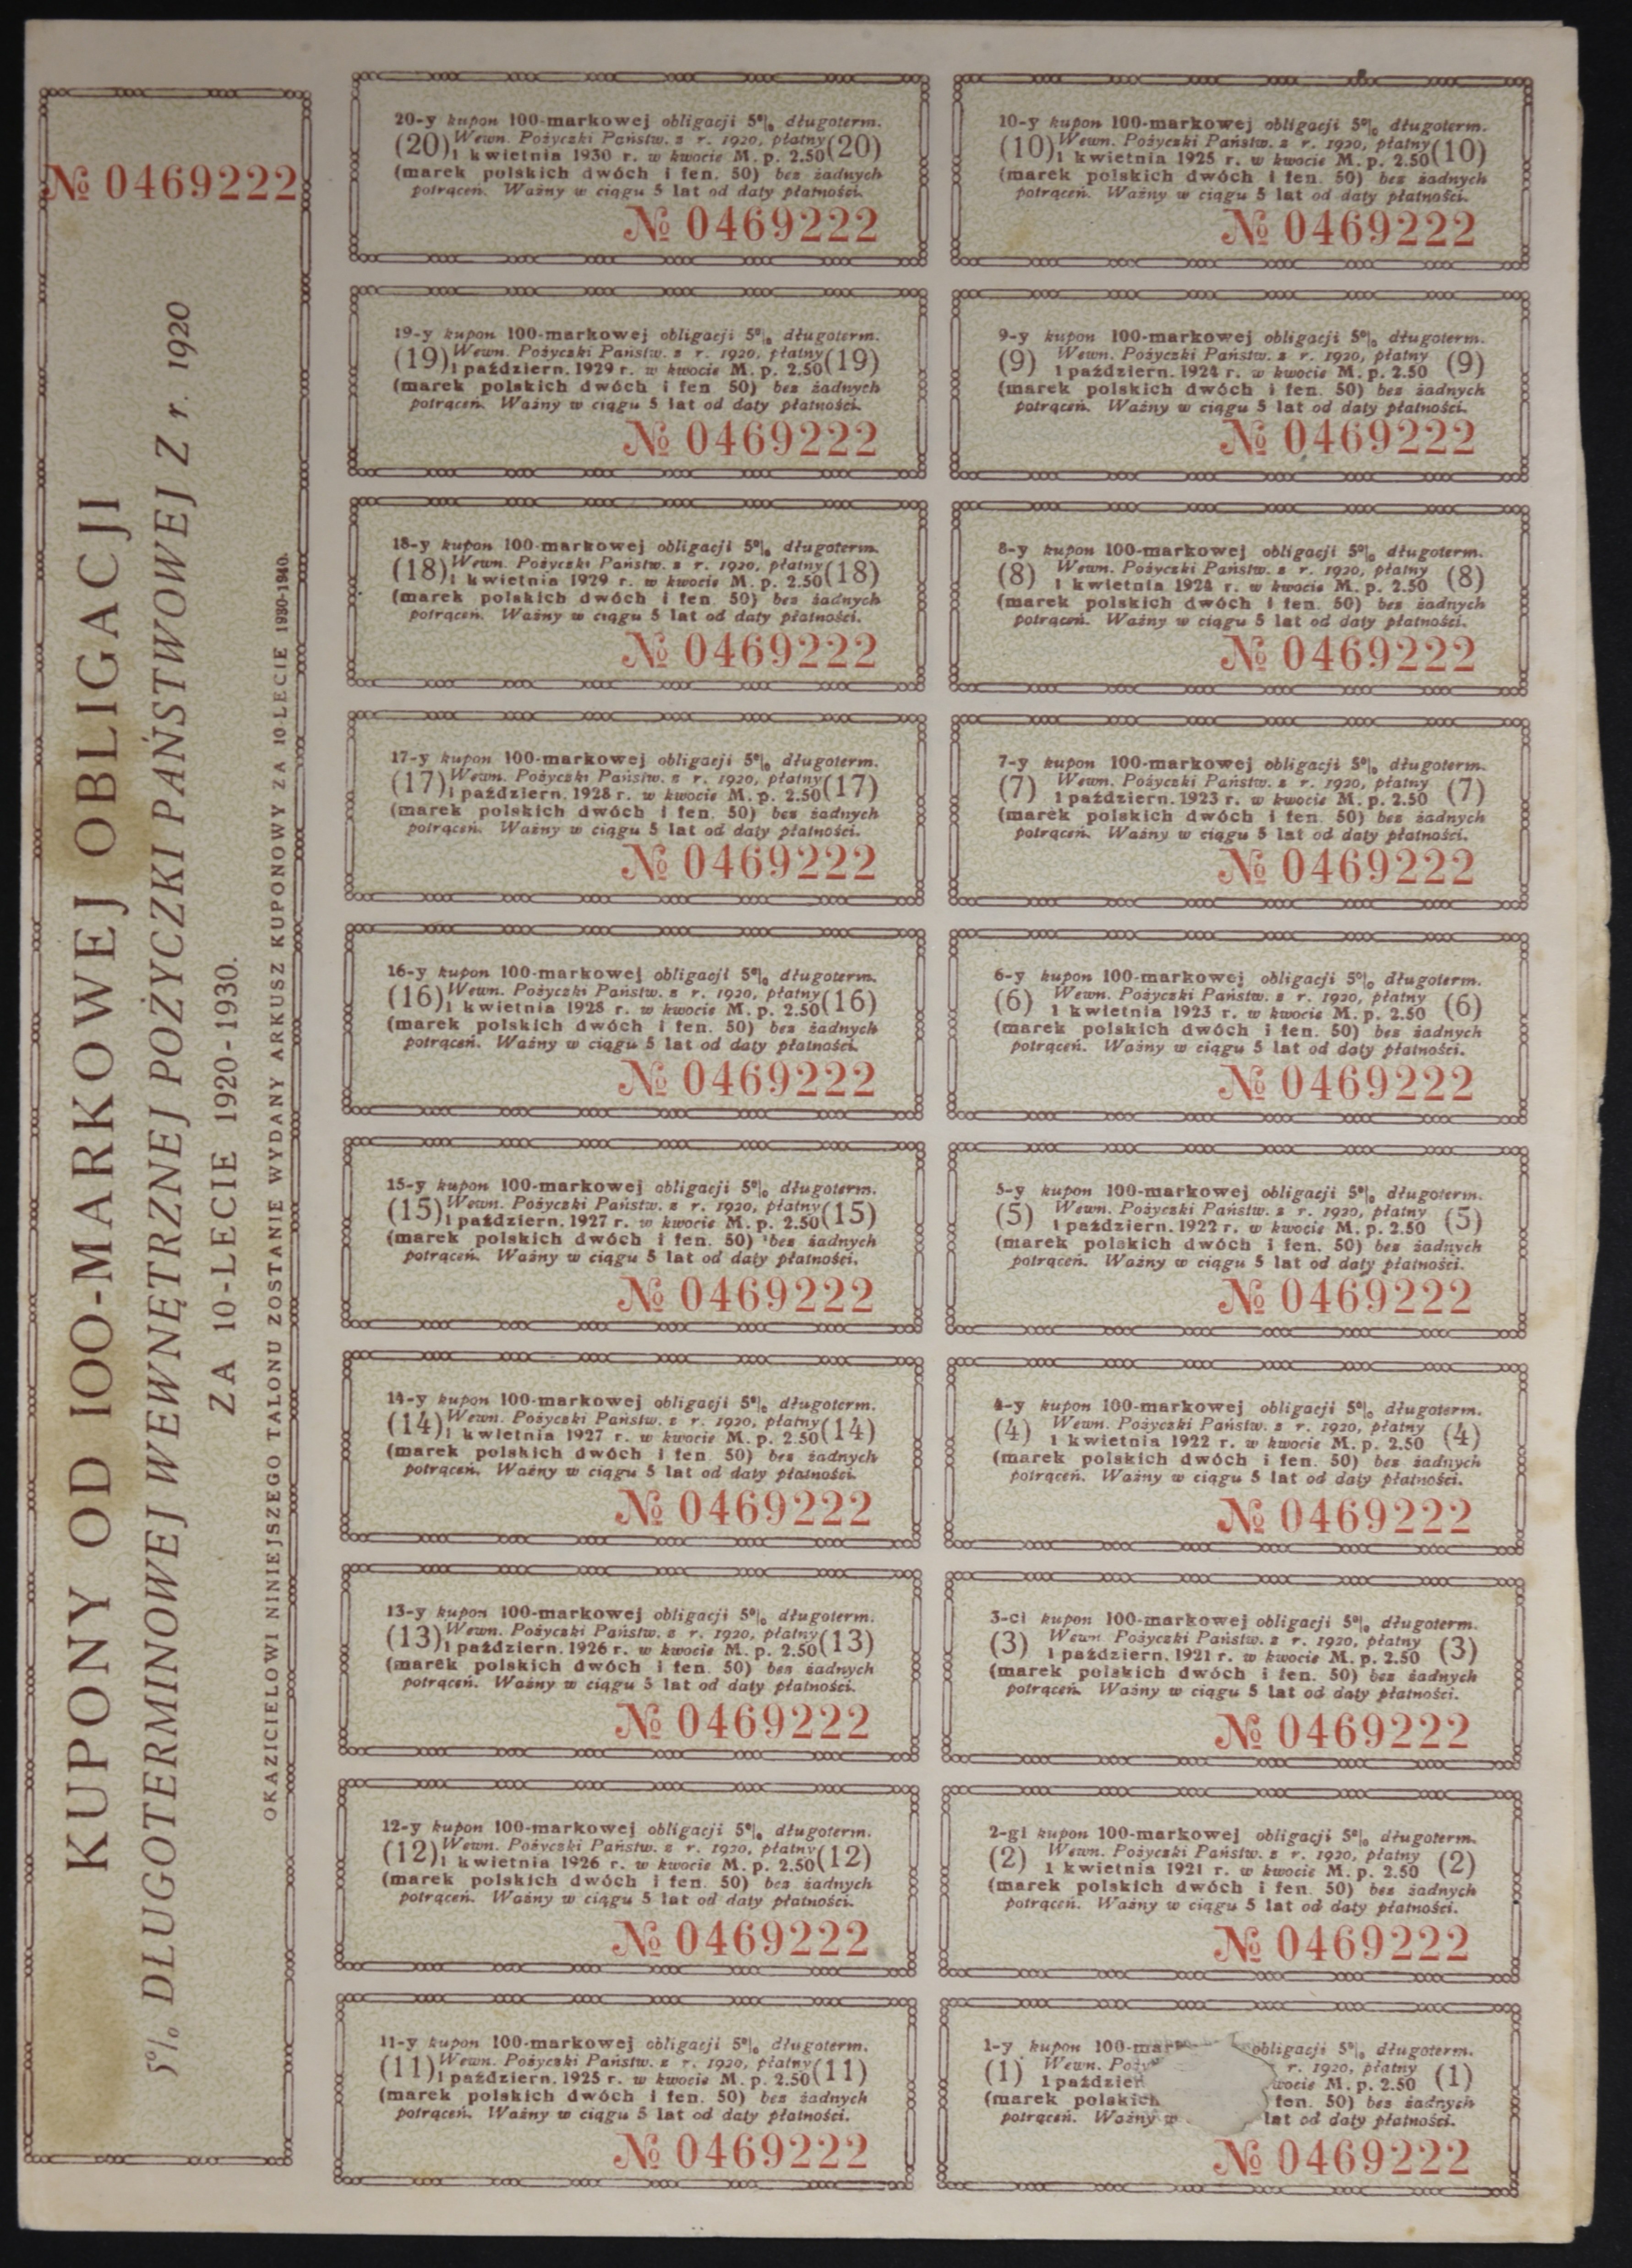 № 0469222
KUPONY OD 100-MARKOWEJ OBLIGACJI
5% DŁUGOTERMINOWEJ WEWNĘTRZNEJ POŻYCZKI PAŃSTWOWEJ Z r. 1920
ZA 10-LECIE 1920-1930.
OKAZICIELOWI NINIEJSZEGO TALONU ZOSTANIE WYDANY ARKUSZ KUPONOWY ZA 10-LECIE 1930-1940.
20-y kupon 100-markowej obligacji 5% długoterm.
(20) Wewn. Pożyczki Państw. z r. 1920, płatny (20)
1 kwietnia 1930 r. w kwocie M. p. 2.50
(marek polskich dwóch i fen. 50) bez żadnych
potrąceń. Ważny w ciągu 5 lat od daty płatności.
№ 0469222
10-y kupon 100-markowej obligacji 5% długoterm.
(10) Wewn. Pożyczki Państw. z r. 1920, płatny (10)
1 kwietnia 1925 r. w kwocie M. p. 2.50
(marek polskich dwóch i fen. 50) bez żadnych
potrąceń. Ważny w ciągu 5 lat od daty płatności.
№ 0469222
19-y kupon 100-markowej obligacji 5% długoterm.
(19) Wewn. Pożyczki Państw. z r. 1920, płatny (19)
1 październ. 1929 r. w kwocie M. p. 2.50
(marek polskich dwóch i fen. 50) bez żadnych
potrąceń. Ważny w ciągu 5 lat od daty płatności.
№ 0469222
9-y kupon 100-markowej obligacji 5% długoterm.
(9) Wewn. Pożyczki Państw. z r. 1920, płatny (9)
1 październ. 1924 r. w kwocie M. p. 2.50
(marek polskich dwóch i fen. 50) bez żadnych
potrąceń. Ważny w ciągu 5 lat od daty płatności.
№ 0469222
18-y kupon 100-markowej obligacji 5% długoterm.
(18) Wewn. Pożyczki Państw. z r. 1920, płatny (18)
1 kwietnia 1929 r. w kwocie M. p. 2.50
(marek polskich dwóch i fen. 50) bez żadnych
potrąceń. Ważny w ciągu 5 lat od daty płatności.
№ 0469222
8-y kupon 100-markowej obligacji 5% długoterm.
(8) Wewn. Pożyczki Państw. z r. 1920, płatny (8)
1 kwietnia 1924 r. w kwocie M. p. 2.50
(marek polskich dwóch i fen. 50) bez żadnych
potrąceń. Ważny w ciągu 5 lat od daty płatności.
№ 0469222
17-y kupon 100-markowej obligacji 5% długoterm.
(17) Wewn. Pożyczki Państw. z r. 1920, płatny (17)
1 październ. 1928 r. w kwocie M. p. 2.50
(marek polskich dwóch i fen. 50) bez żadnych
potrąceń. Ważny w ciągu 5 lat od daty płatności.
№ 0469222
7-y kupon 100-markowej obligacji 5% długoterm.
(7) Wewn. Pożyczki Państw. z r. 1920, płatny (7)
1 październ. 1923 r. w kwocie M. p. 2.50
(marek polskich dwóch i fen. 50) bez żadnych
potrąceń. Ważny w ciągu 5 lat od daty płatności.
№ 0469222
16-y kupon 100-markowej obligacji 5% długoterm.
(16) Wewn. Pożyczki Państw. z r. 1920, płatny (16)
1 kwietnia 1928 r. w kwocie M. p. 2.50
(marek polskich dwóch i fen. 50) bez żadnych
potrąceń. Ważny w ciągu 5 lat od daty płatności.
№ 0469222
6-y kupon 100-markowej obligacji 5% długoterm.
(6) Wewn. Pożyczki Państw. z r. 1920, płatny (6)
1 kwietnia 1923 r. w kwocie M. p. 2.50
(marek polskich dwóch i fen. 50) bez żadnych
potrąceń. Ważny w ciągu 5 lat od daty płatności.
№ 0469222
15-y kupon 100-markowej obligacji 5% długoterm.
(15) Wewn. Pożyczki Państw. z r. 1920, płatny (15)
1 październ. 1927 r. w kwocie M. p. 2.50
(marek polskich dwóch i fen. 50) bez żadnych
potrąceń. Ważny w ciągu 5 lat od daty płatności.
№ 0469222
5-y kupon 100-markowej obligacji 5% długoterm.
(5) Wewn. Pożyczki Państw. z r. 1920, płatny (5)
1 październ. 1922 r. w kwocie M. p. 2.50
(marek polskich dwóch i fen. 50) bez żadnych
potrąceń. Ważny w ciągu 5 lat od daty płatności.
№ 0469222
14-y kupon 100-markowej obligacji 5% długoterm.
(14) Wewn. Pożyczki Państw. z r. 1920, płatny (14)
1 kwietnia 1927 r. w kwocie M. p. 2.50
(marek polskich dwóch i fen. 50) bez żadnych
potrąceń. Ważny w ciągu 5 lat od daty płatności.
№ 0469222
4-y kupon 100-markowej obligacji 5% długoterm.
(4) Wewn. Pożyczki Państw. z r. 1920, płatny (4)
1 kwietnia 1922 r. w kwocie M. p. 2.50
(marek polskich dwóch i fen. 50) bez żadnych
potrąceń. Ważny w ciągu 5 lat od daty płatności.
№ 0469222
13-y kupon 100-markowej obligacji 5% długoterm.
(13) Wewn. Pożyczki Państw. z r. 1920, płatny (13)
1 październ. 1926 r. w kwocie M. p. 2.50
(marek polskich dwóch i fen. 50) bez żadnych
potrąceń. Ważny w ciągu 5 lat od daty płatności.
№ 0469222
3-ci kupon 100-markowej obligacji 5% długoterm.
(3) Wewn. Pożyczki Państw. z r. 1920, płatny (3)
1 październ. 1921 r. w kwocie M. p. 2.50
(marek polskich dwóch i fen. 50) bez żadnych
potrąceń. Ważny w ciągu 5 lat od daty płatności.
№ 0469222
12-y kupon 100-markowej obligacji 5% długoterm.
(12) Wewn. Pożyczki Państw. z r. 1920, płatny (12)
1 kwietnia 1926 r. w kwocie M. p. 2.50
(marek polskich dwóch i fen. 50) bez żadnych
potrąceń. Ważny w ciągu 5 lat od daty płatności.
№ 0469222
2-gi kupon 100-markowej obligacji 5% długoterm.
(2) Wewn. Pożyczki Państw. z r. 1920, płatny (2)
1 kwietnia 1921 r. w kwocie M. p. 2.50
(marek polskich dwóch i fen. 50) bez żadnych
potrąceń. Ważny w ciągu 5 lat od daty płatności.
№ 0469222
11-y kupon 100-markowej obligacji 5% długoterm.
(11) Wewn. Pożyczki Państw. z r. 1920, płatny (11)
1 październ. 1925 r. w kwocie M. p. 2.50
(marek polskich dwóch i fen. 50) bez żadnych
potrąceń. Ważny w ciągu 5 lat od daty płatności.
№ 0469222
1-y kupon 100-mar obligacji 5% długoterm.
(1) Wewn. Poży r. 1920, płatny (1)
1 paździer wocie M. p. 2.50
(marek polskich fen. 50) bez żadnych
potrąceń. Ważny w lat od daty płatności.
№ 0469222